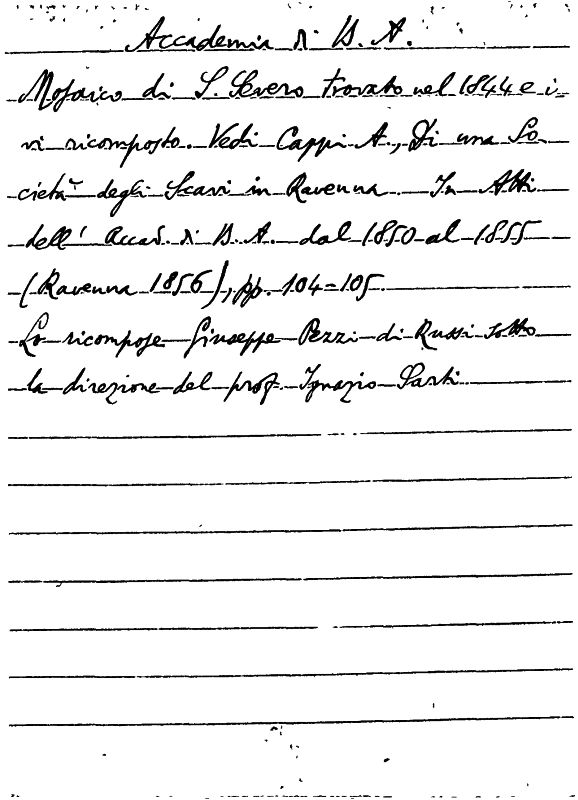 Accademia di B. A.
Mosaico di S. Severo trovato nel 1844 e i-
vi ricomposto. Vedi Cappi A., Di una So-
cietà degli Scavi in Ravenna. In Atti
dell' Accad. di B. A. dal 1850 al 1855
(Ravenna 1856), pp. 104-105
Lo ricompose Giuseppe Pezzi di Russi sotto
la direzione del prof. Ignazio Sarti